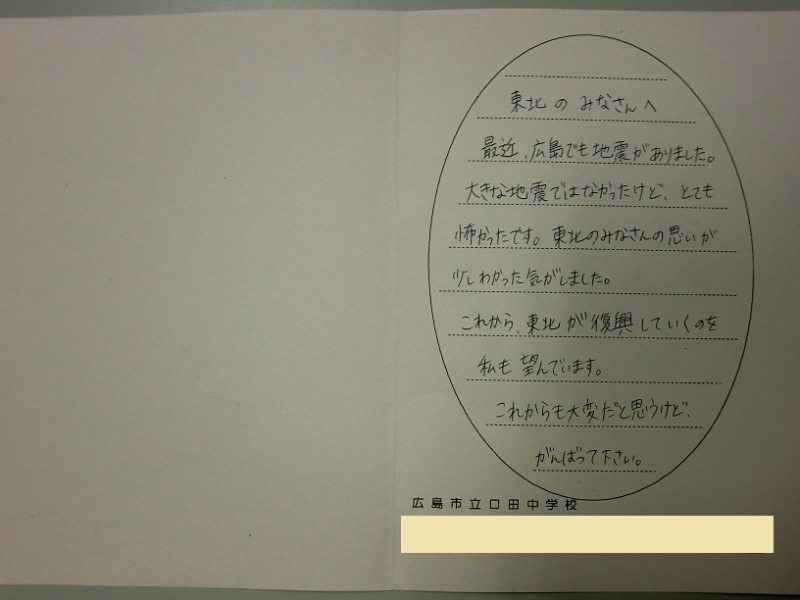 東北のみなさんへ
最近、広島でも地震がありました。
大きな地震ではなかったけど、とても
怖かったです。東北のみなさんの思いが
少しわかった気がしました。
これから、東北が復興していくのを
私も望んでいます。
これからも大変だと思うけど、
がんばって下さい。
広島市立口田中学校